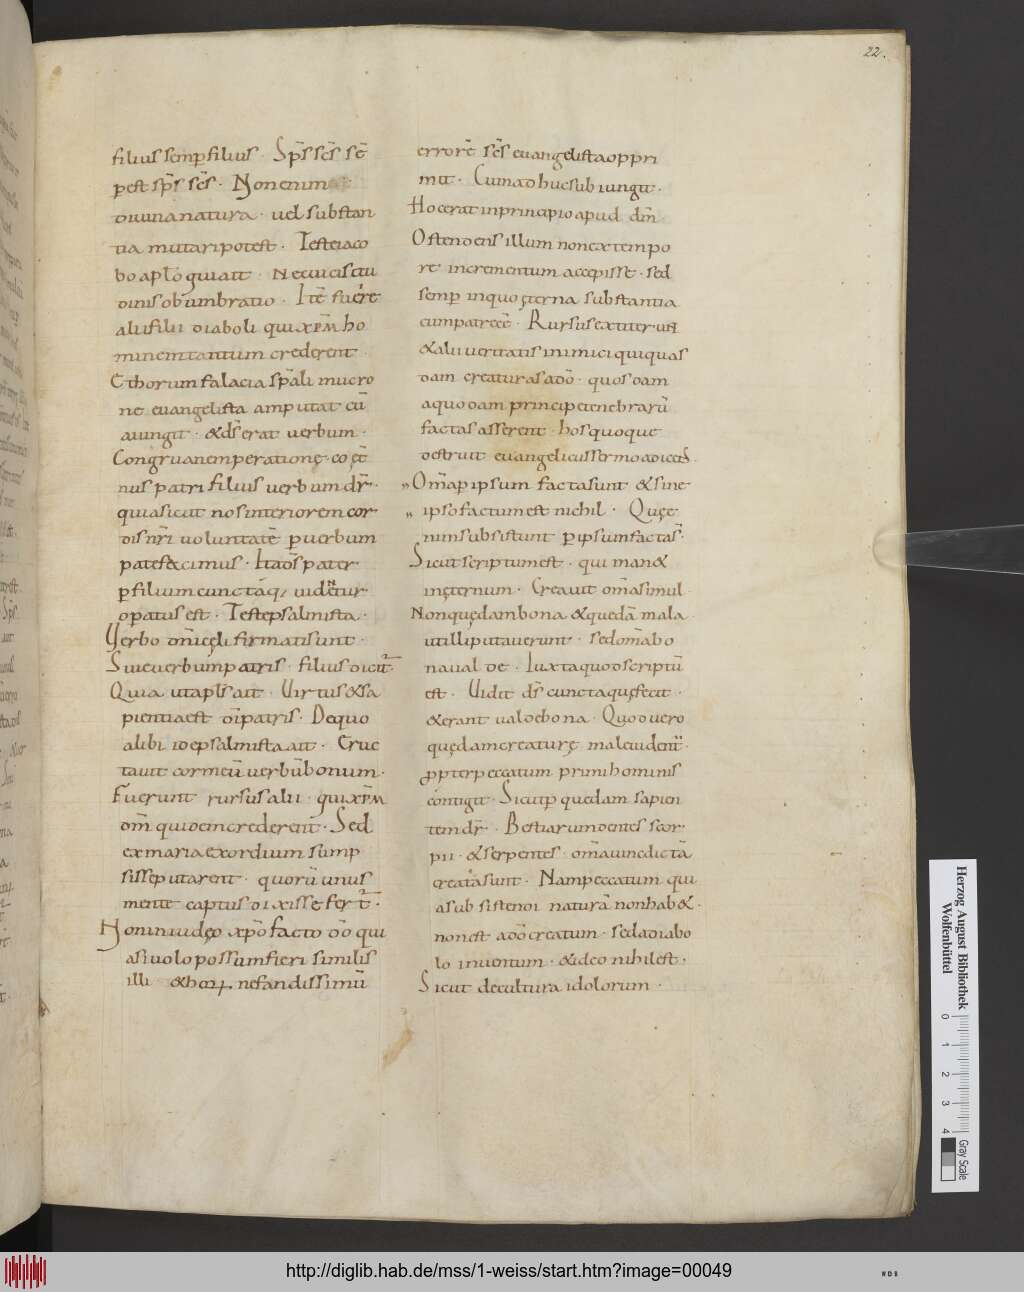 22.
filius semp filius · Sp̄s sc̄s sē
p est sp̄s sc̄s · Non enim
diuina natura · uel substan
tia mutari potest · Teste iaco
bo aptō qui ait · Nec uicissitu
dinis obumbratio · Itē fuere
alii filii diaboli qui xpm̄ ho
minem tantum crederent ·
Et horum falacia sp̄ali mucro
ne euangelista amputat cū
aiungit · & ds̄ erat uerbum ·
Congruanem peratione · co ę̄t
nus patri filius uerbum dr̄ ·
quia sicut nos interiorem cor
dis nr̄i uoluntatē p uerbum
patefecimus · Ita ds̄ pater
p filium cuncta q; uidētur
opatus est · Teste psalmista ·
Uerbo dn̄i cęli firmati sunt ·
Siue uerbum patris · filius dicit̄ ·
Quia ut apls̄ ait · Uirtus & sa
pientia est dī patris · De quo
alibi idē psalmista ait · Eruc
tauit cor meū uerbū bonum ·
Fuerunt rursus alii · qui xpm̄
dm̄ quidem crederent · Sed
ex maria exordium sump
sisse putarent · quorū unus
mente captus dixisse fert̄ ·
Non inuideo xp̄o facto dō qui
a si uolo possum fieri similis
illi · & hꝫ nefandissimū
errorē sc̄s euangelista oppri
mit · Cum adhuc subiungit ·
Hoc erat in principio apud dm̄
Ostendens illum non ex tempo
re incrementum accepisse · sed
semp in quo ęterna substantia
cum patre eē · Rursus extiterūt
& alii ueritatis inimici qui quas
dam creaturas a dō · quosdam
a quodam principe tenebrarū
factas asserent · hos quoque
destruit euangelicus sermo adiciens ·
Om̄a p ipsum facta sunt & sine
ipso factum est nichil · Quęe
nim subsistunt p ipsum facta s̄ ·
Sicut scriptum est · qui man&
in ęternum · Creauit om̄a simul ·
Non quędam bona & quedā mala
ut illi putauerunt · sed om̄a bo
na ualde · Iuxta quod scriptū
est · Uidit ds̄ cuncta quę fecit ·
& erant ualde bona · Quod uero
quędam creaturę male uident̄ ·
ppter peccatum primi hominis
contigit · Sicut p quedam sapien
tem dr̄ · Bestiarum dentes scor
pii · & serpentes · om̄a in uindictā
creata sunt · Nam peccatum qui
a subsistendi naturā non hab& ·
non est a dō creatum · sed a diabo
lo inuentum · & ideo nihil est ·
Sicut de cultura idolorum ·
Herzog August Bibliothek
Wolfenbüttel
0 1 2 3 4
Gray Scale
http://diglib.hab.de/mss/1-weiss/start.htm?image=00049